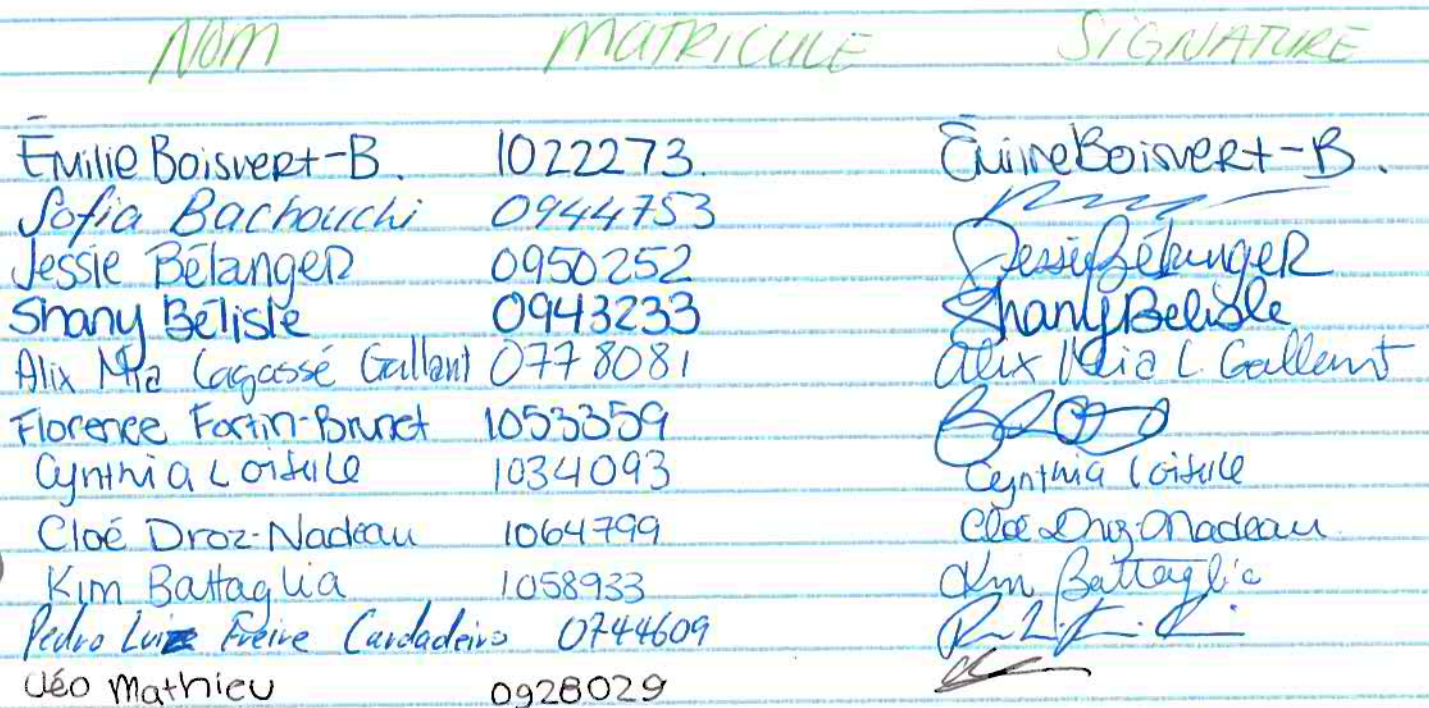 NOM MATRICULE SIGNATURE
Émilie Boisvert-B. 1022273. Émilie Boisvert-B.
Sofia Bachouchi 0944753
Jessie Bélanger 0950252 Jessie Bélanger
Shany Bélisle 0943233 Shany Bélisle
Alix Mia Lagassé Gallant 0778081 Alix Mia L. Gallant
Florence Fortin-Brunet 1053359
Cynthia 1034093 Cynthia
Cloé Droz-Nadeau 1064799 Cloé Droz-Nadeau
Kim Battaglia 1058933 Kim Battaglia
Pedro Luiz Freire Cardadeiro 0744609
Léo Mathieu 0928029